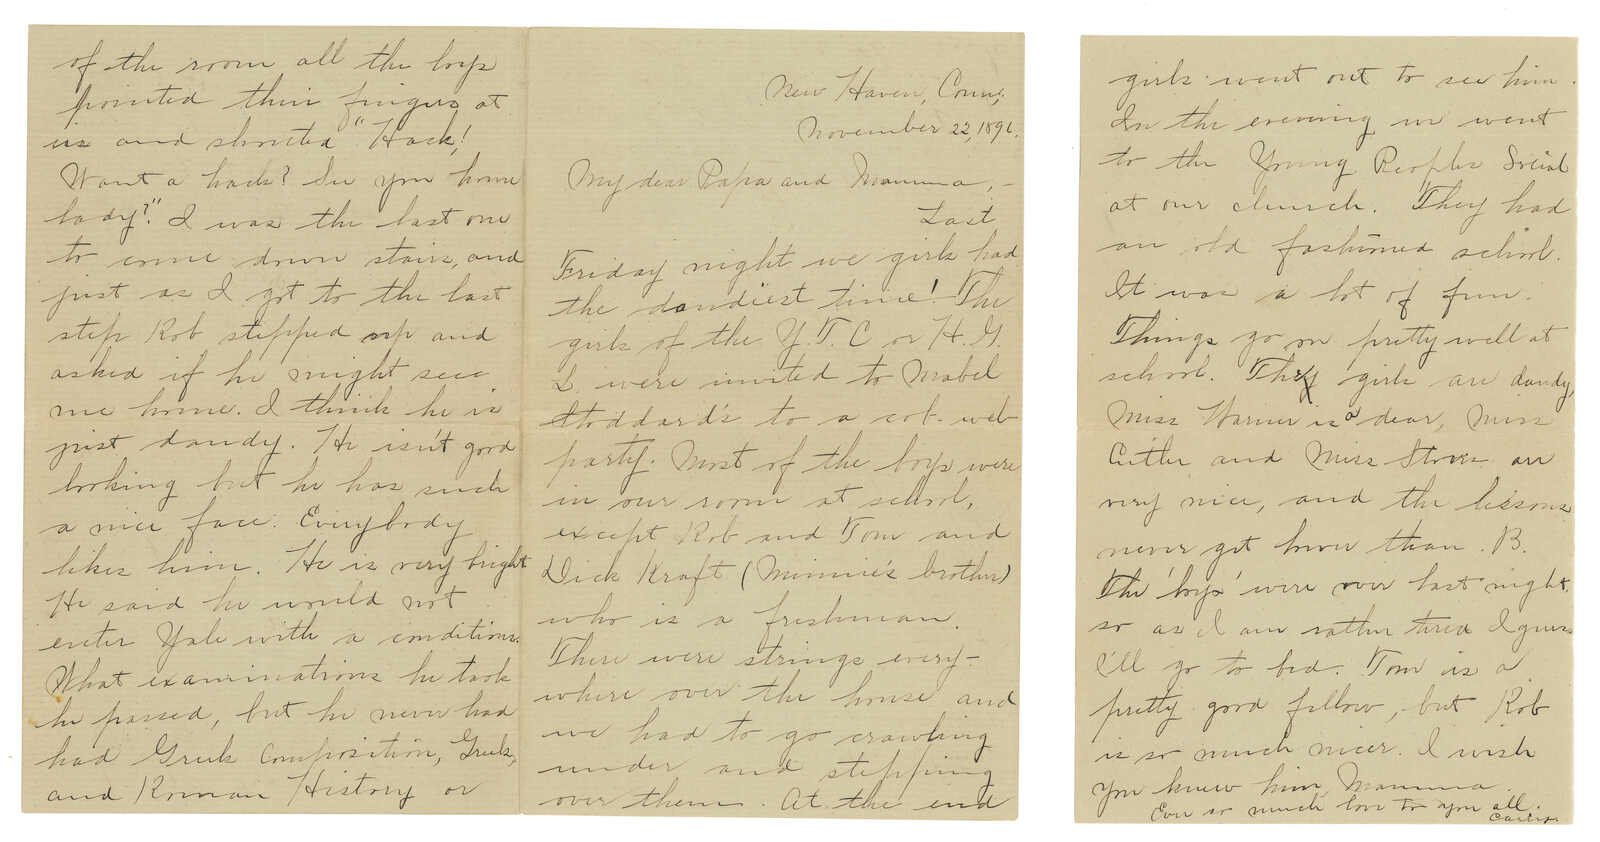 of the room all the boys
pointed their fingers at
us and shouted "Hack!
Want a hack? See you home
lady?". I was the last one
to come down stairs, and
just as I got to the last
step Rob stepped up and
asked if he might see
me home. I think he is
just dandy. He isn't good
looking but he has such
a nice face. Everybody
likes him. He is very bright
He said he would not
enter Yale with a condition.
What examinations he took
he passed, but he never had
had Greek Composition, Greek,
and Roman History or
New Haven, Conn.,
November 22, 1891.
My dear Papa and Mamma, -
Last
Friday night we girls had
the dandiest time! The
girls of the Y. T. C or H. G.
S were invited to Mabel
Stoddard's to a cob-web
party. Most of the boys were
in our room at school,
except Rob and Tom and
Dick Kraft (Minnie's brother)
who is a freshman.
There were strings every-
where over the house and
we had to go crawling
under and stepping
over them. At the end
girls went out to see him.
In the evening we went
to the Young Peoples Social
at our church. They had
an old fashioned school.
It was a lot of fun.
Things go on pretty well at
school. The girls are dandy,
Miss Warner is a dear, Miss
Cutler and Miss Storrs are
very nice, and the lessons
never get lower than B.
The 'boys' were over last night
so as I am rather tired I guess
I'll go to bed. Tom is a
pretty good fellow, but Rob
is so much nicer. I wish
you knew him Mamma.
Ever so much love to you all.